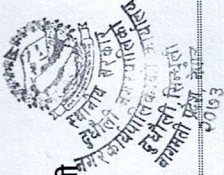 स्थानीय सरकार
दुधौली नगरपालिका
नगर कार्यपालिकाको कार्यालय
दुधौली, सिन्धुली
बागमती प्रदेश, नेपाल
२०७३